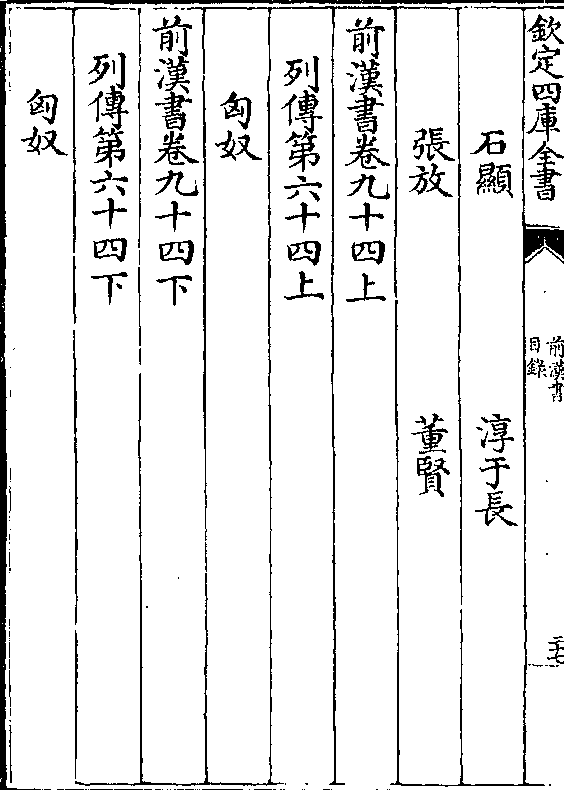 欽定四庫全書
前漢書
目錄
三七
石顯　淳于長
張放　董賢
前漢書卷九十四上
列傳第六十四上
匈奴
前漢書卷九十四下
列傳第六十四下
匈奴